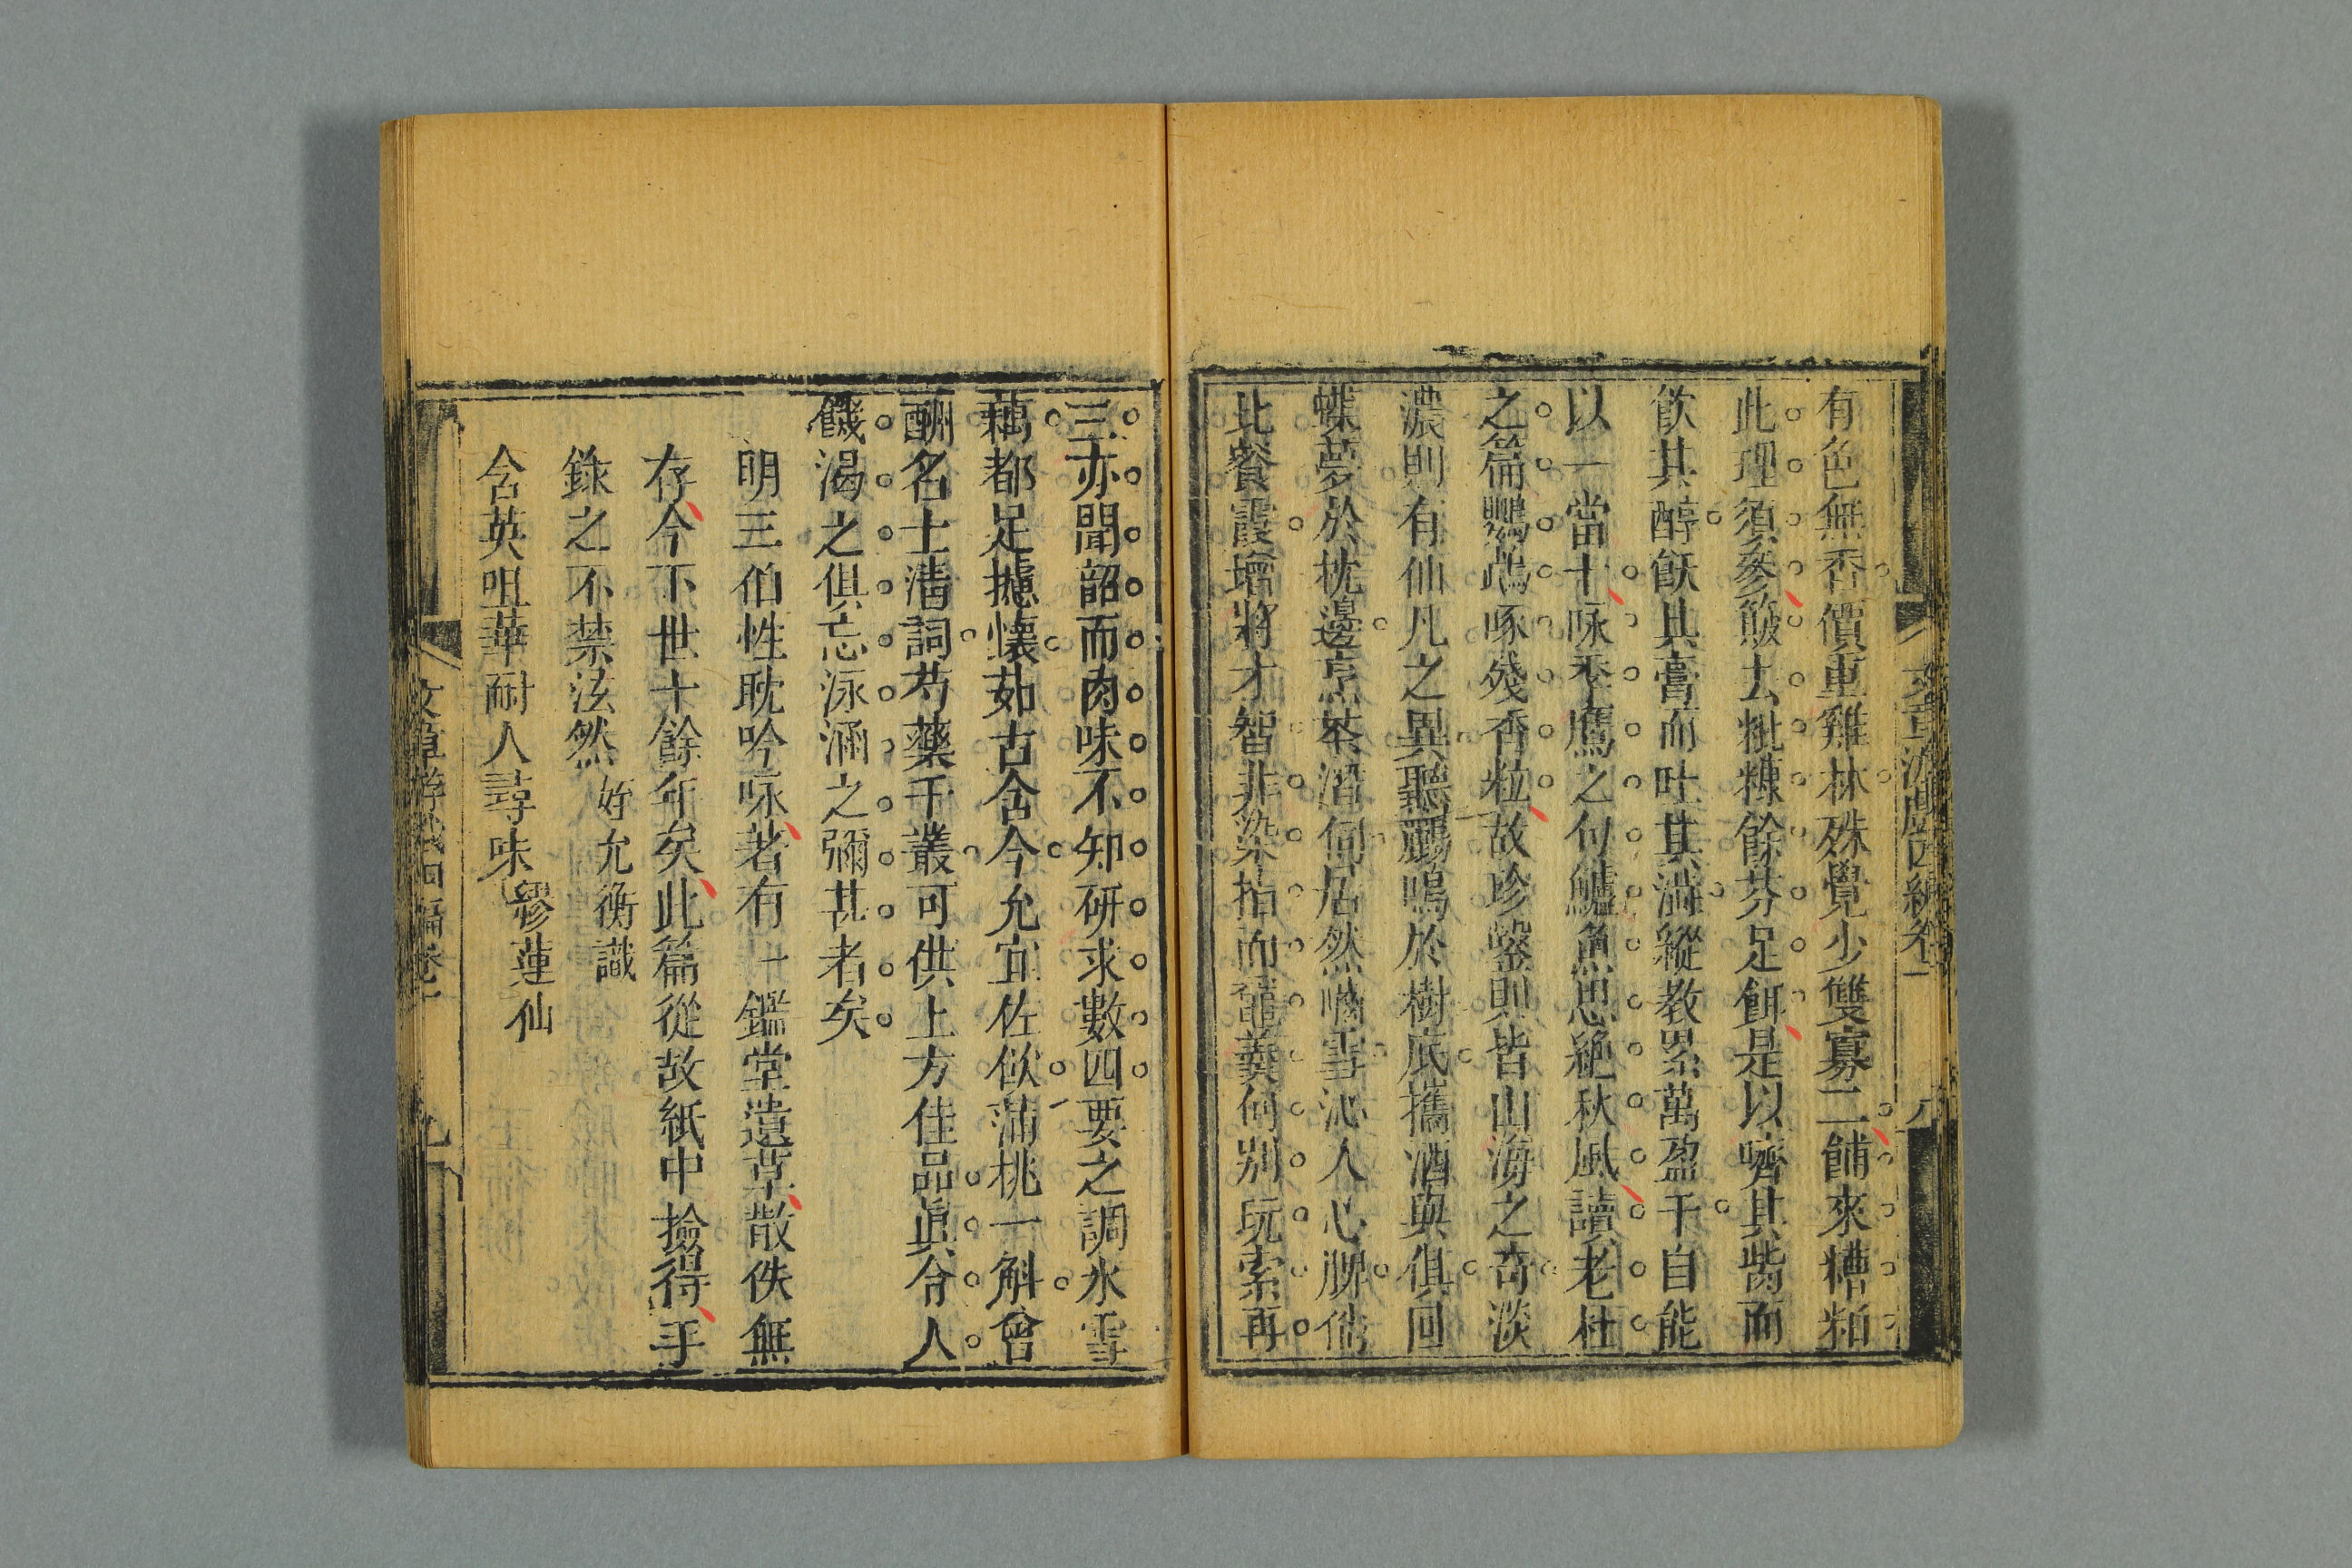 文章游戲四編卷一 八
有色無香價重雞林殊覺少雙寡二餔來糟粕
此理須參簸去粃糠餘芬足餌是以嚌其胾而
飲其醇飫其膏而吐其滓縱教累萬盈千自能
以一當十咏季鷹之句鱸魚思絕秋風讀老杜
之篇鸚鵡啄殘香粒故珍錯則皆山海之奇淡
濃則有仙凡之異聽鸝鳴於樹底攜酒與俱回
蝶夢於枕邊烹茶潛伺居然嚼雪沁人心脾倘
比餐霞增將才智非染指而羹何別玩索再
三亦聞韶而肉味不知研求數四要之調水雪
藕都足攄懷茹古含今允宜佐飲蒲桃一斛曾
酬名士清詞芍藥千叢可供上方佳品眞令人
饑渴之俱忘泳涵之彌甚者矣
明三伯性耽吟咏著有一鑑堂遺草散佚無
存今下世十餘年矣此篇從故紙中撿得手
錄之不禁泫然 姪允衡識
含英咀華耐人尋味 繆蓮仙
文章游戲四編卷一 九